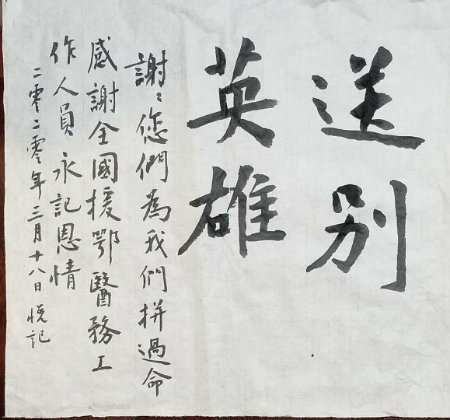 送别
英雄
謝〻您們為我們拼過命
感謝全國援鄂醫務工
作人員永記恩情
二零二零年三月十八日悦記